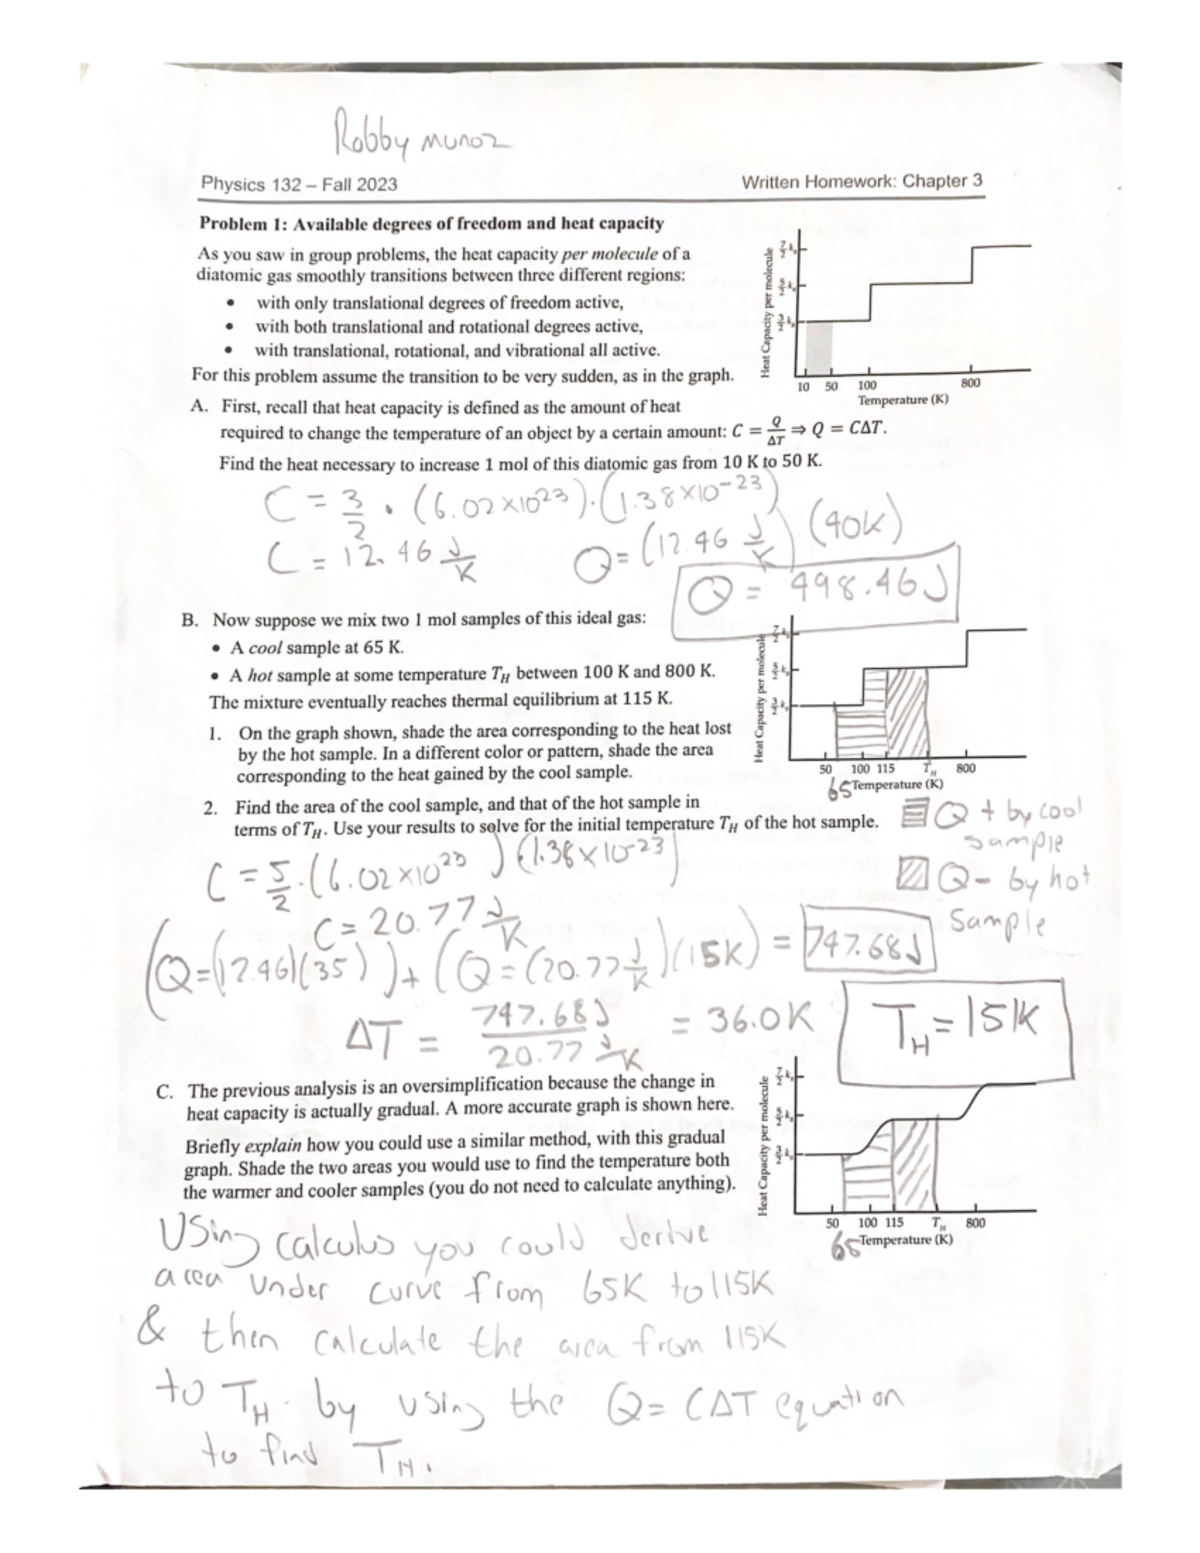 Robby Munoz
Physics 132 – Fall 2023
Written Homework: Chapter 3
Problem 1: Available degrees of freedom and heat capacity
As you saw in group problems, the heat capacity per molecule of a
diatomic gas smoothly transitions between three different regions:
• with only translational degrees of freedom active,
• with both translational and rotational degrees active,
• with translational, rotational, and vibrational all active.
For this problem assume the transition to be very sudden, as in the graph.
Heat Capacity per molecule
10 50 100 800
Temperature (K)
A. First, recall that heat capacity is defined as the amount of heat
required to change the temperature of an object by a certain amount: C = Q/ΔT ⇒ Q = CΔT.
Find the heat necessary to increase 1 mol of this diatomic gas from 10 K to 50 K.
C = 3/2 · (6.02×10²³)·(1.38×10⁻²³)
C = 12.46 J/K
Q = (12.46 J/K) (40K)
Q = 498.46J
B. Now suppose we mix two 1 mol samples of this ideal gas:
• A cool sample at 65 K.
• A hot sample at some temperature T_H between 100 K and 800 K.
The mixture eventually reaches thermal equilibrium at 115 K.
1. On the graph shown, shade the area corresponding to the heat lost
by the hot sample. In a different color or pattern, shade the area
corresponding to the heat gained by the cool sample.
Heat Capacity per molecule
50 100 115 T_H 800
65 Temperature (K)
2. Find the area of the cool sample, and that of the hot sample in
terms of T_H. Use your results to solve for the initial temperature T_H of the hot sample.
Q + by cool
sample
Q - by hot
Sample
C = 5/2 · (6.02×10²³)(1.38×10⁻²³)
C = 20.77 J/K
(Q=(12.46)(35)) + (Q = (20.77 J/K)(15K) = 747.68J
ΔT = 747.68J / 20.77 J/K = 36.0K
T_H = 151K
C. The previous analysis is an oversimplification because the change in
heat capacity is actually gradual. A more accurate graph is shown here.
Briefly explain how you could use a similar method, with this gradual
graph. Shade the two areas you would use to find the temperature both
the warmer and cooler samples (you do not need to calculate anything).
Heat Capacity per molecule
50 100 115 T_H 800
65 Temperature (K)
Using calculus you could derive
area under curve from 65K to 115K
& then calculate the area from 115K
to T_H by using the Q = CΔT equation
to find T_H.